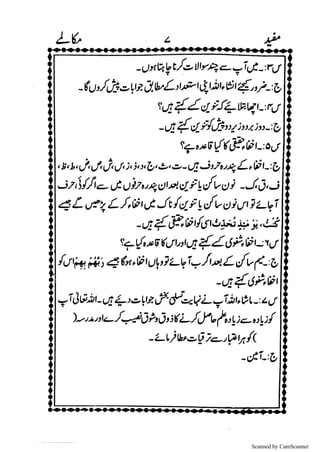 مفید ۷ مکالمے
س۳:۔ میں آپ سے چند سوالات کرنا چاہتا ہوں۔
ج:۔ ضرور کیجئے انشاءاللہ اپنی استعداد کے مطابق جوابات پیش کروں گا۔
س۴:۔ اچھا بتلائیے کہ تنوین کسے کہتے ہیں؟
ج:۔ دو زبر دو زیر دو پیش کو تنوین کہتے ہیں۔
س۵:۔ اخفاء حقیقی کا کیا قاعدہ ہے؟
ج:۔ اخفاء کے پندرہ حروف ہیں۔ ت، ث، ج، د، ذ، ز، س، ش، ص، ض، ط، ظ،
ف، ق، ک۔ نون ساکن یا تنوین بعد ان پندرہ حرفوں میں سے اگر کوئی حرف
آجائے تو اس نون ساکن یا تنوین کو ناک میں اخفاء کر کے پڑھیں گے جیسے
کُنْتُ، یَوْمَئِذٍ تُحَدِّثُ اسی کو اخفاء حقیقی کہتے ہیں۔
س۶:۔ اخفاء شفوی کسے کہتے ہیں اور اس کا قاعدہ کیا ہے؟
ج:۔ میم ساکن کے بعد اگر ب آجائے تو وہاں اخفاء ہوگا جیسے رَبَّهُمْ بِهِمْ اس کو
اخفاء شفوی کہتے ہیں۔
س۷:۔ ماشاءاللہ آپ نے نہایت تسلی بخش جوابات دیے ہیں۔ اللہ تعالیٰ آپ
کو زیادہ سے زیادہ علم حاصل کرنے کا ذوق و شوق نصیب کرے اور مدرسہ (
) کو ہر اعتبار سے ترقیات عطا فرمائے۔
ج:۔ آمین۔
Scanned by CamScanner